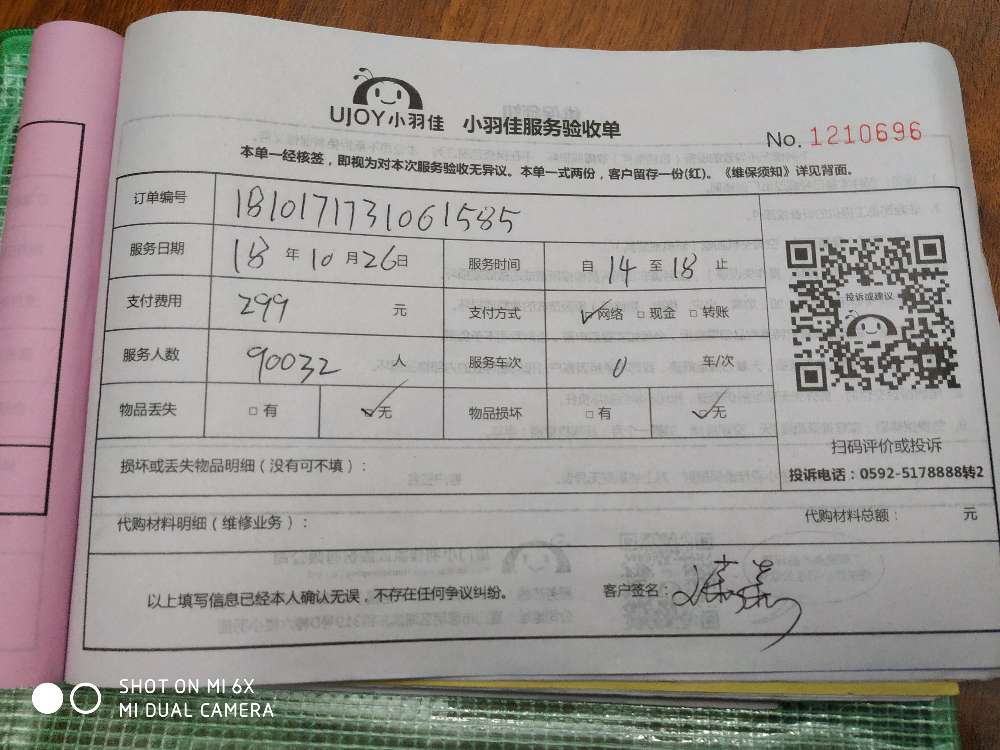 UJOY小羽佳 小羽佳服务验收单
No. 1210696
本单一经核签，即视为对本次服务验收无异议。本单一式两份，客户留存一份(红)。《维保须知》详见背面。
订单编号 181017173106158​5
服务日期 18 年 10 月 26 日 服务时间 自 14 至 18 止
支付费用 299 元 支付方式 ☑网络 □现金 □转账
服务人数 90032 人 服务车次 0 车/次
物品丢失 □有 ☑无 物品损坏 □有 ☑无
投诉或建议
扫码评价或投诉
投诉电话：0592-5178888转2
损坏或丢失物品明细（没有可不填）：
代购材料明细（维修业务）： 代购材料总额： 元
以上填写信息已经本人确认无误，不存在任何争议纠纷。 客户签名：
SHOT ON MI 6X
MI DUAL CAMERA